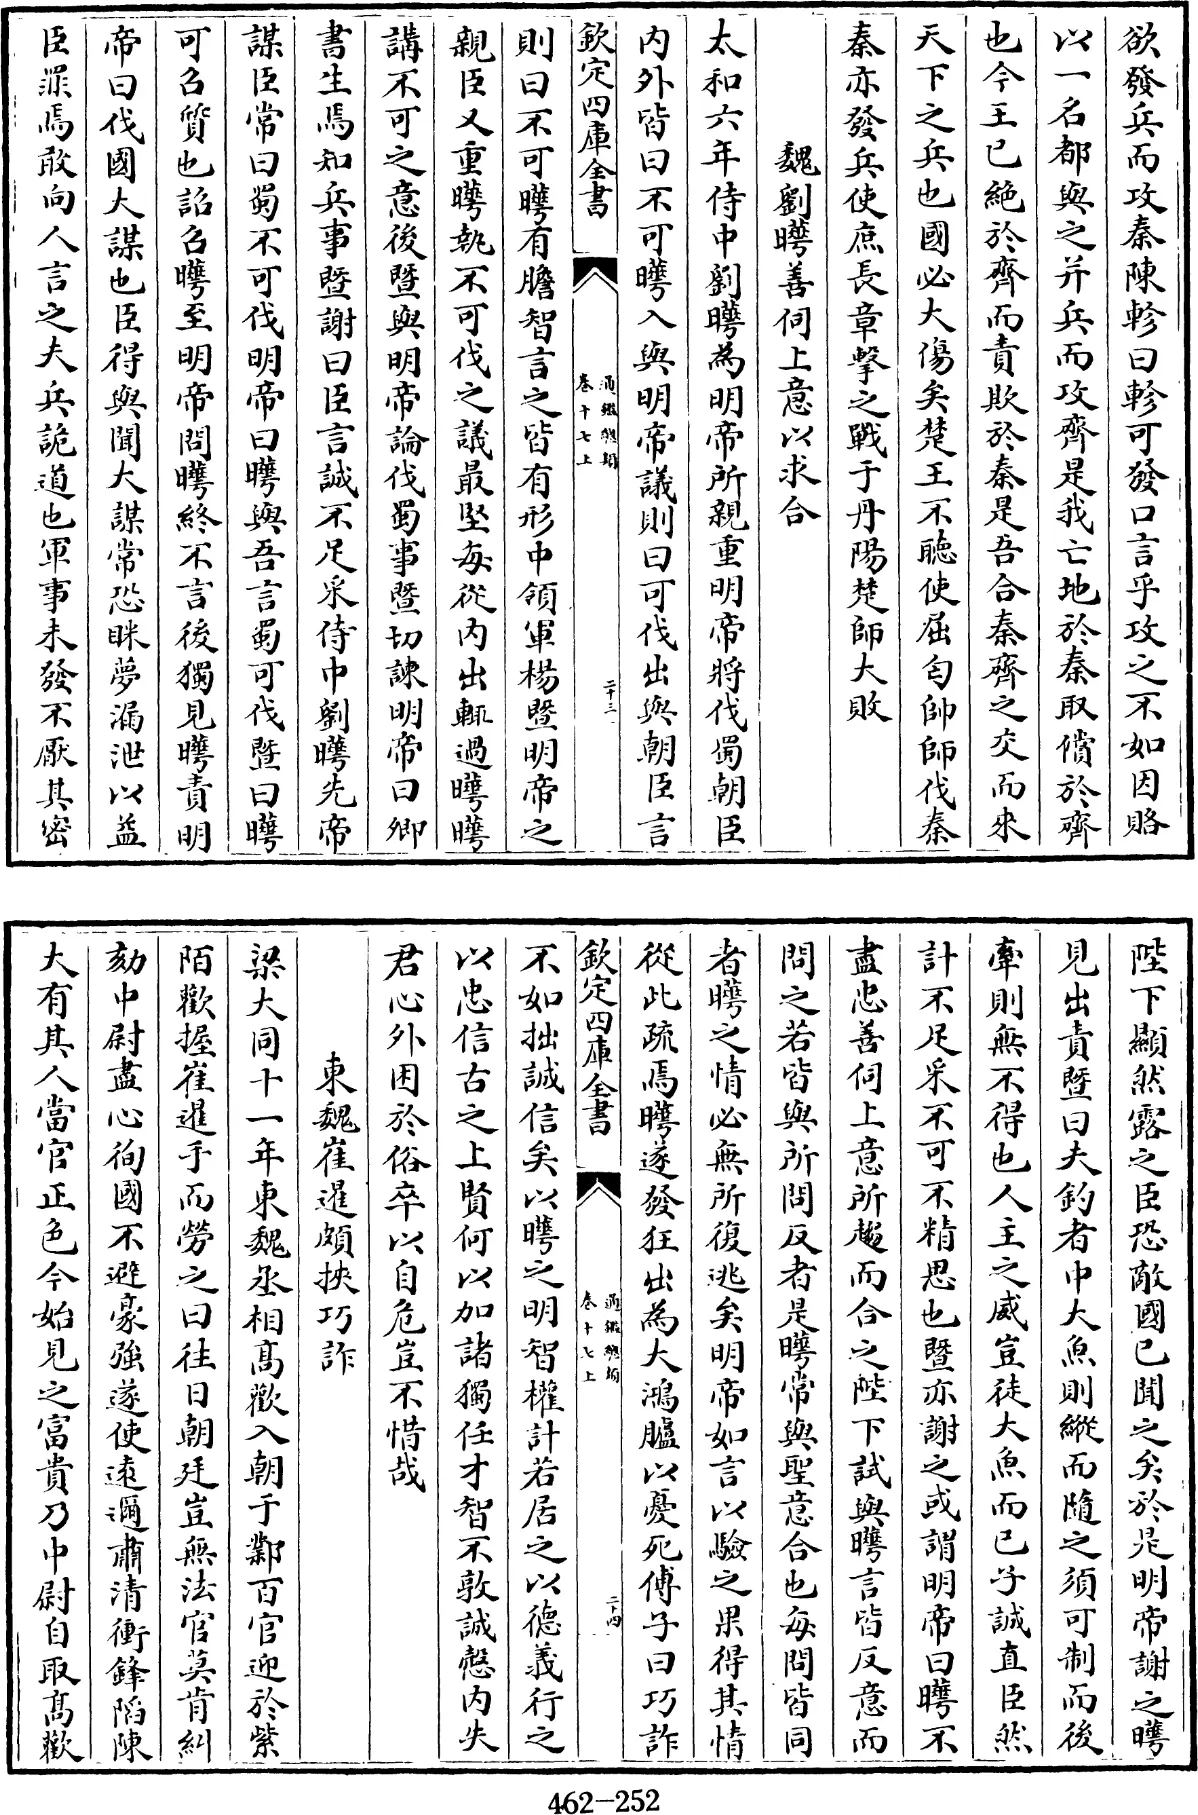 欲發兵而攻秦陳軫曰軫可發口言乎攻之不如因賂
以一名都與之并兵而攻齊是我亡地於秦取償於齊
也今王已絶於齊而責欺於秦是吾合秦齊之交而來
天下之兵也國必大傷矣楚王不聽使屈匄帥師伐秦
秦亦發兵使庶長章擊之戰于丹陽楚師大敗
魏劉曄善伺上意以求合
太和六年侍中劉曄為明帝所親重明帝將伐蜀朝臣
内外皆曰不可曄入與明帝議則曰可伐出與朝臣言
欽定四庫全書
通鑑總類
卷十七上
二十三
則曰不可曄有膽智言之皆有形中領軍楊暨明帝之
親臣又重曄執不可伐之議最堅每從内出輒過曄曄
講不可之意後暨與明帝論伐蜀事暨切諫明帝曰卿
書生焉知兵事暨謝曰臣言誠不足采侍中劉曄先帝
謀臣常曰蜀不可伐明帝曰曄與吾言蜀可伐暨曰曄
可召質也詔召曄至明帝問曄終不言後獨見曄責明
帝曰伐國大謀也臣得與聞大謀常恐眯夢漏泄以益
臣罪焉敢向人言之夫兵詭道也軍事未發不厭其密
陛下顯然露之臣恐敵國已聞之矣於是明帝謝之曄
見出責暨曰夫釣者中大魚則縱而隨之須可制而後
牽則無不得也人主之威豈徒大魚而已子誠直臣然
計不足采不可不精思也暨亦謝之或謂明帝曰曄不
盡忠善伺上意所趨而合之陛下試與曄言皆反意而
問之若皆與所問反者是曄常與聖意合也每問皆同
者曄之情必無所復逃矣明帝如言以驗之果得其情
從此疏焉曄遂發狂出為大鴻臚以憂死傅子曰巧詐
欽定四庫全書
通鑑總類
卷十七上
二十四
不如拙誠信矣以曄之明智權計若居之以德義行之
以忠信古之上賢何以加諸獨任才智不敦誠慤内失
君心外困於俗卒以自危豈不惜哉
東魏崔暹頗挾巧詐
梁大同十一年東魏丞相髙歡入朝于鄴百官迎於紫
陌歡握崔暹手而勞之曰往日朝廷豈無法官莫肯糾
劾中尉盡心徇國不避豪強遂使逺邇肅清衝鋒陷陳
大有其人當官正色今始見之富貴乃中尉自取髙歡
462-252